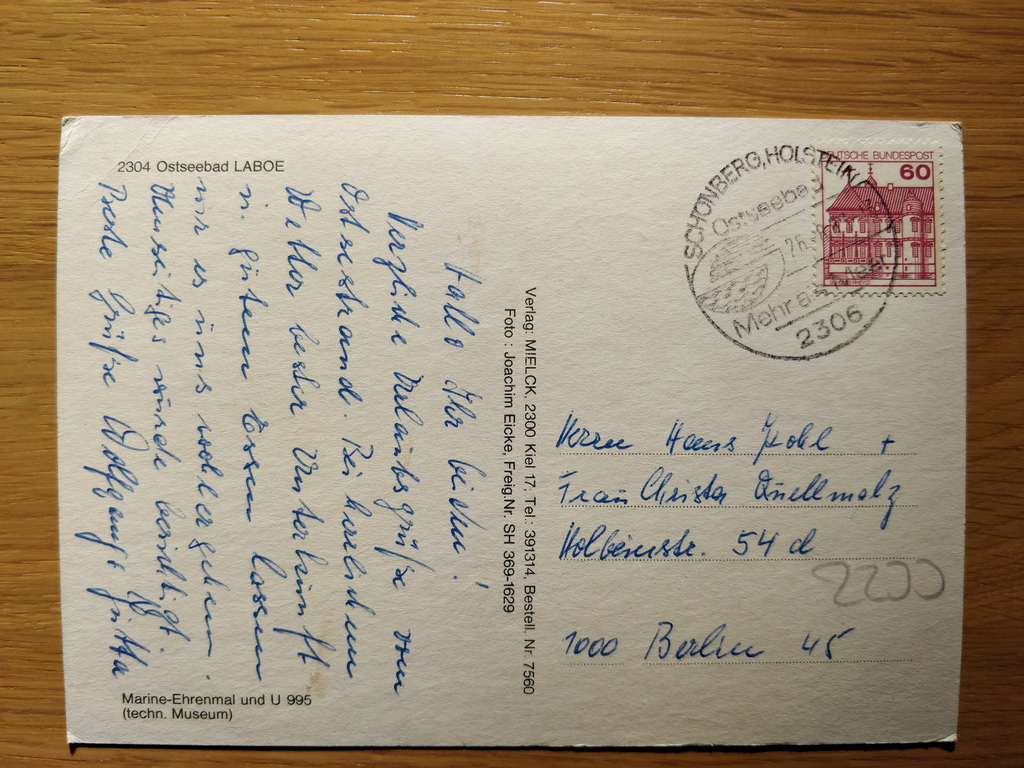 2304 Ostseebad LABOE
Hallo Ihr beiden!
Herzliche Urlaubsgrüße vom
Ostseestrand. Bei herrlichem
Wetter bester Unterkunft
u. gutem Essen lassen
wir es uns wohlergehen.
Hiesiges wurde besichtigt.
Beste Grüße Wolfgang + Jutta
Marine-Ehrenmal und U 995
(techn. Museum)
Verlag: MIELCK, 2300 Kiel 17, Tel.: 391314, Bestell. Nr. 7560
Foto : Joachim Eicke, Freig.Nr. SH 369-1629
SCHÖNBERG, HOLSTEIN
Ostseebad
26.
Mehr am Meer
2306
DEUTSCHE BUNDESPOST
60
Herrn Hans Pohl +
Frau Christa Quellmalz
Holbeinstr. 54 d
1000 Berlin 45